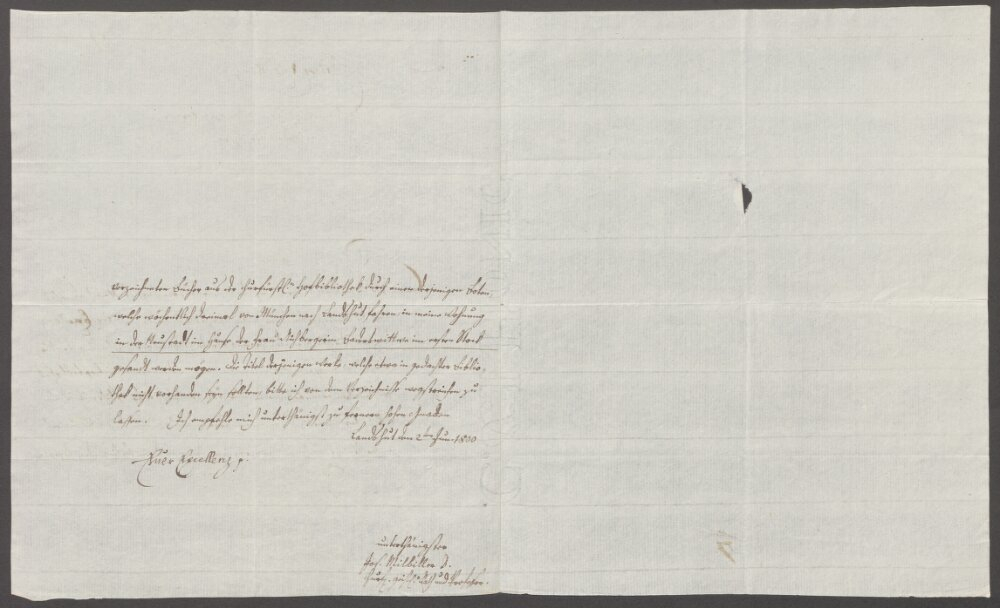 verzeichneten Bücher aus der Churfürstl. Hofbibliothek durch einen derjenigen Boten,
welche wöchentlich dreimal von München nach Landshut fahren, in meine Wohnung
in der Neustadt im Hause der Frau im ersten Stock
gesandt werden mögen. Die Titel derjenigen Werke, welche etwa in gedachter Biblio-
thek nicht vorhanden seyn sollten, bitte ich von dem Verzeichnisse wegstreichen zu
lassen. Ich empfehle mich unterthänigst zu hohen Gnaden
Landshut den Juni
Euer Excellenz
unterthänigster
Jos. Milbiller D.
Rath und Professor.